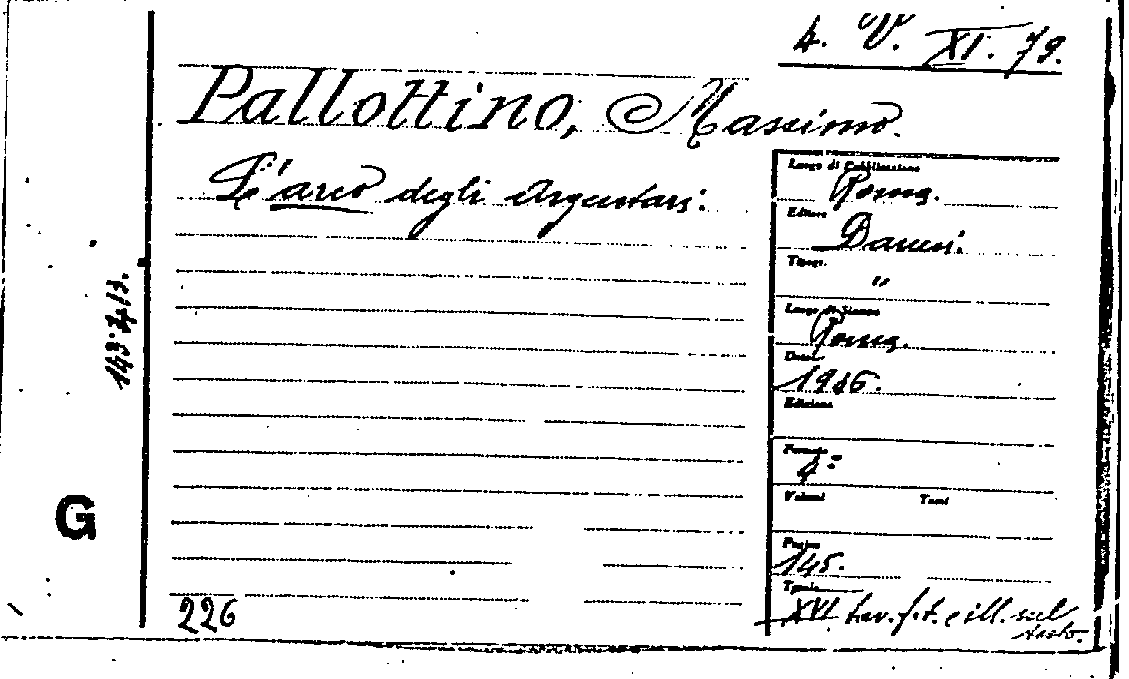 4. V. XI. 79.
Pallottino, Massimo.
L'arco degli Argentari.
Luogo di Pubblicazione
Roma.
Editore
Danesi.
Tipogr.
"
Luogo di Stampa
Roma.
Data
1946.
Edizione
Formato
4°
Volumi Tomi
Pagine
145.
Tavole
XVI tav. f. t. e ill. sul
testo.
G
226